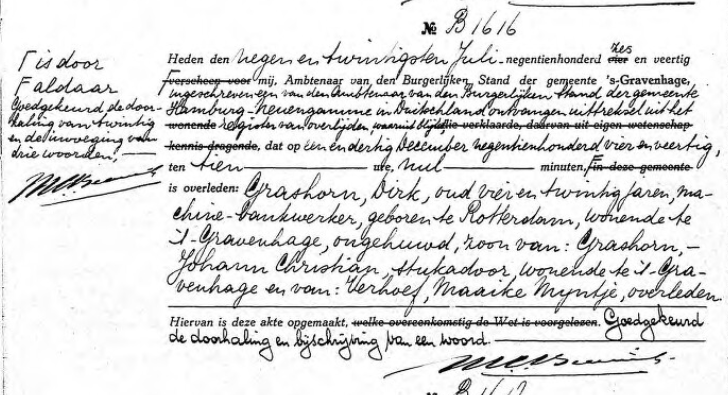 No B1616
T is door
F aldaar
Goedgekeurd de door-
haling van twintig
en de invoeging van
drie woorden,-
Heden den negen en twintigsten Juli - negentienhonderd zes vier en veertig
F verscheen voor mij, Ambtenaar van den Burgerlijken Stand der gemeente 's-Gravenhage,
ingeschreven een van den Ambtenaar van den Burgerlijken Stand der gemeente
Hamburg-Neuengamme in Duitschland ontvangen uittreksel uit het
wonende register van overlijden, waaruit blijkt die verklaarde, daarvan uit eigen wetenschap
kennis dragende, dat op een en dertig December negentienhonderd vier en veertig,
ten tien ure, nul minuten, F in deze gemeente
is overleden: Grashorn, Dirk, oud vier en twintig jaren, ma-
chine-bankwerker, geboren te Rotterdam, wonende te
's-Gravenhage, ongehuwd, zoon van: Grashorn, -
Johann Christian, stukadoor, wonende te 's-Gra-
venhage en van: Verhoef, Maaike Myntje, overleden
Hiervan is deze akte opgemaakt, welke overeenkomstig de Wet is voorgelezen. Goedgekeurd
de doorhaling en bijschrijving van een woord -